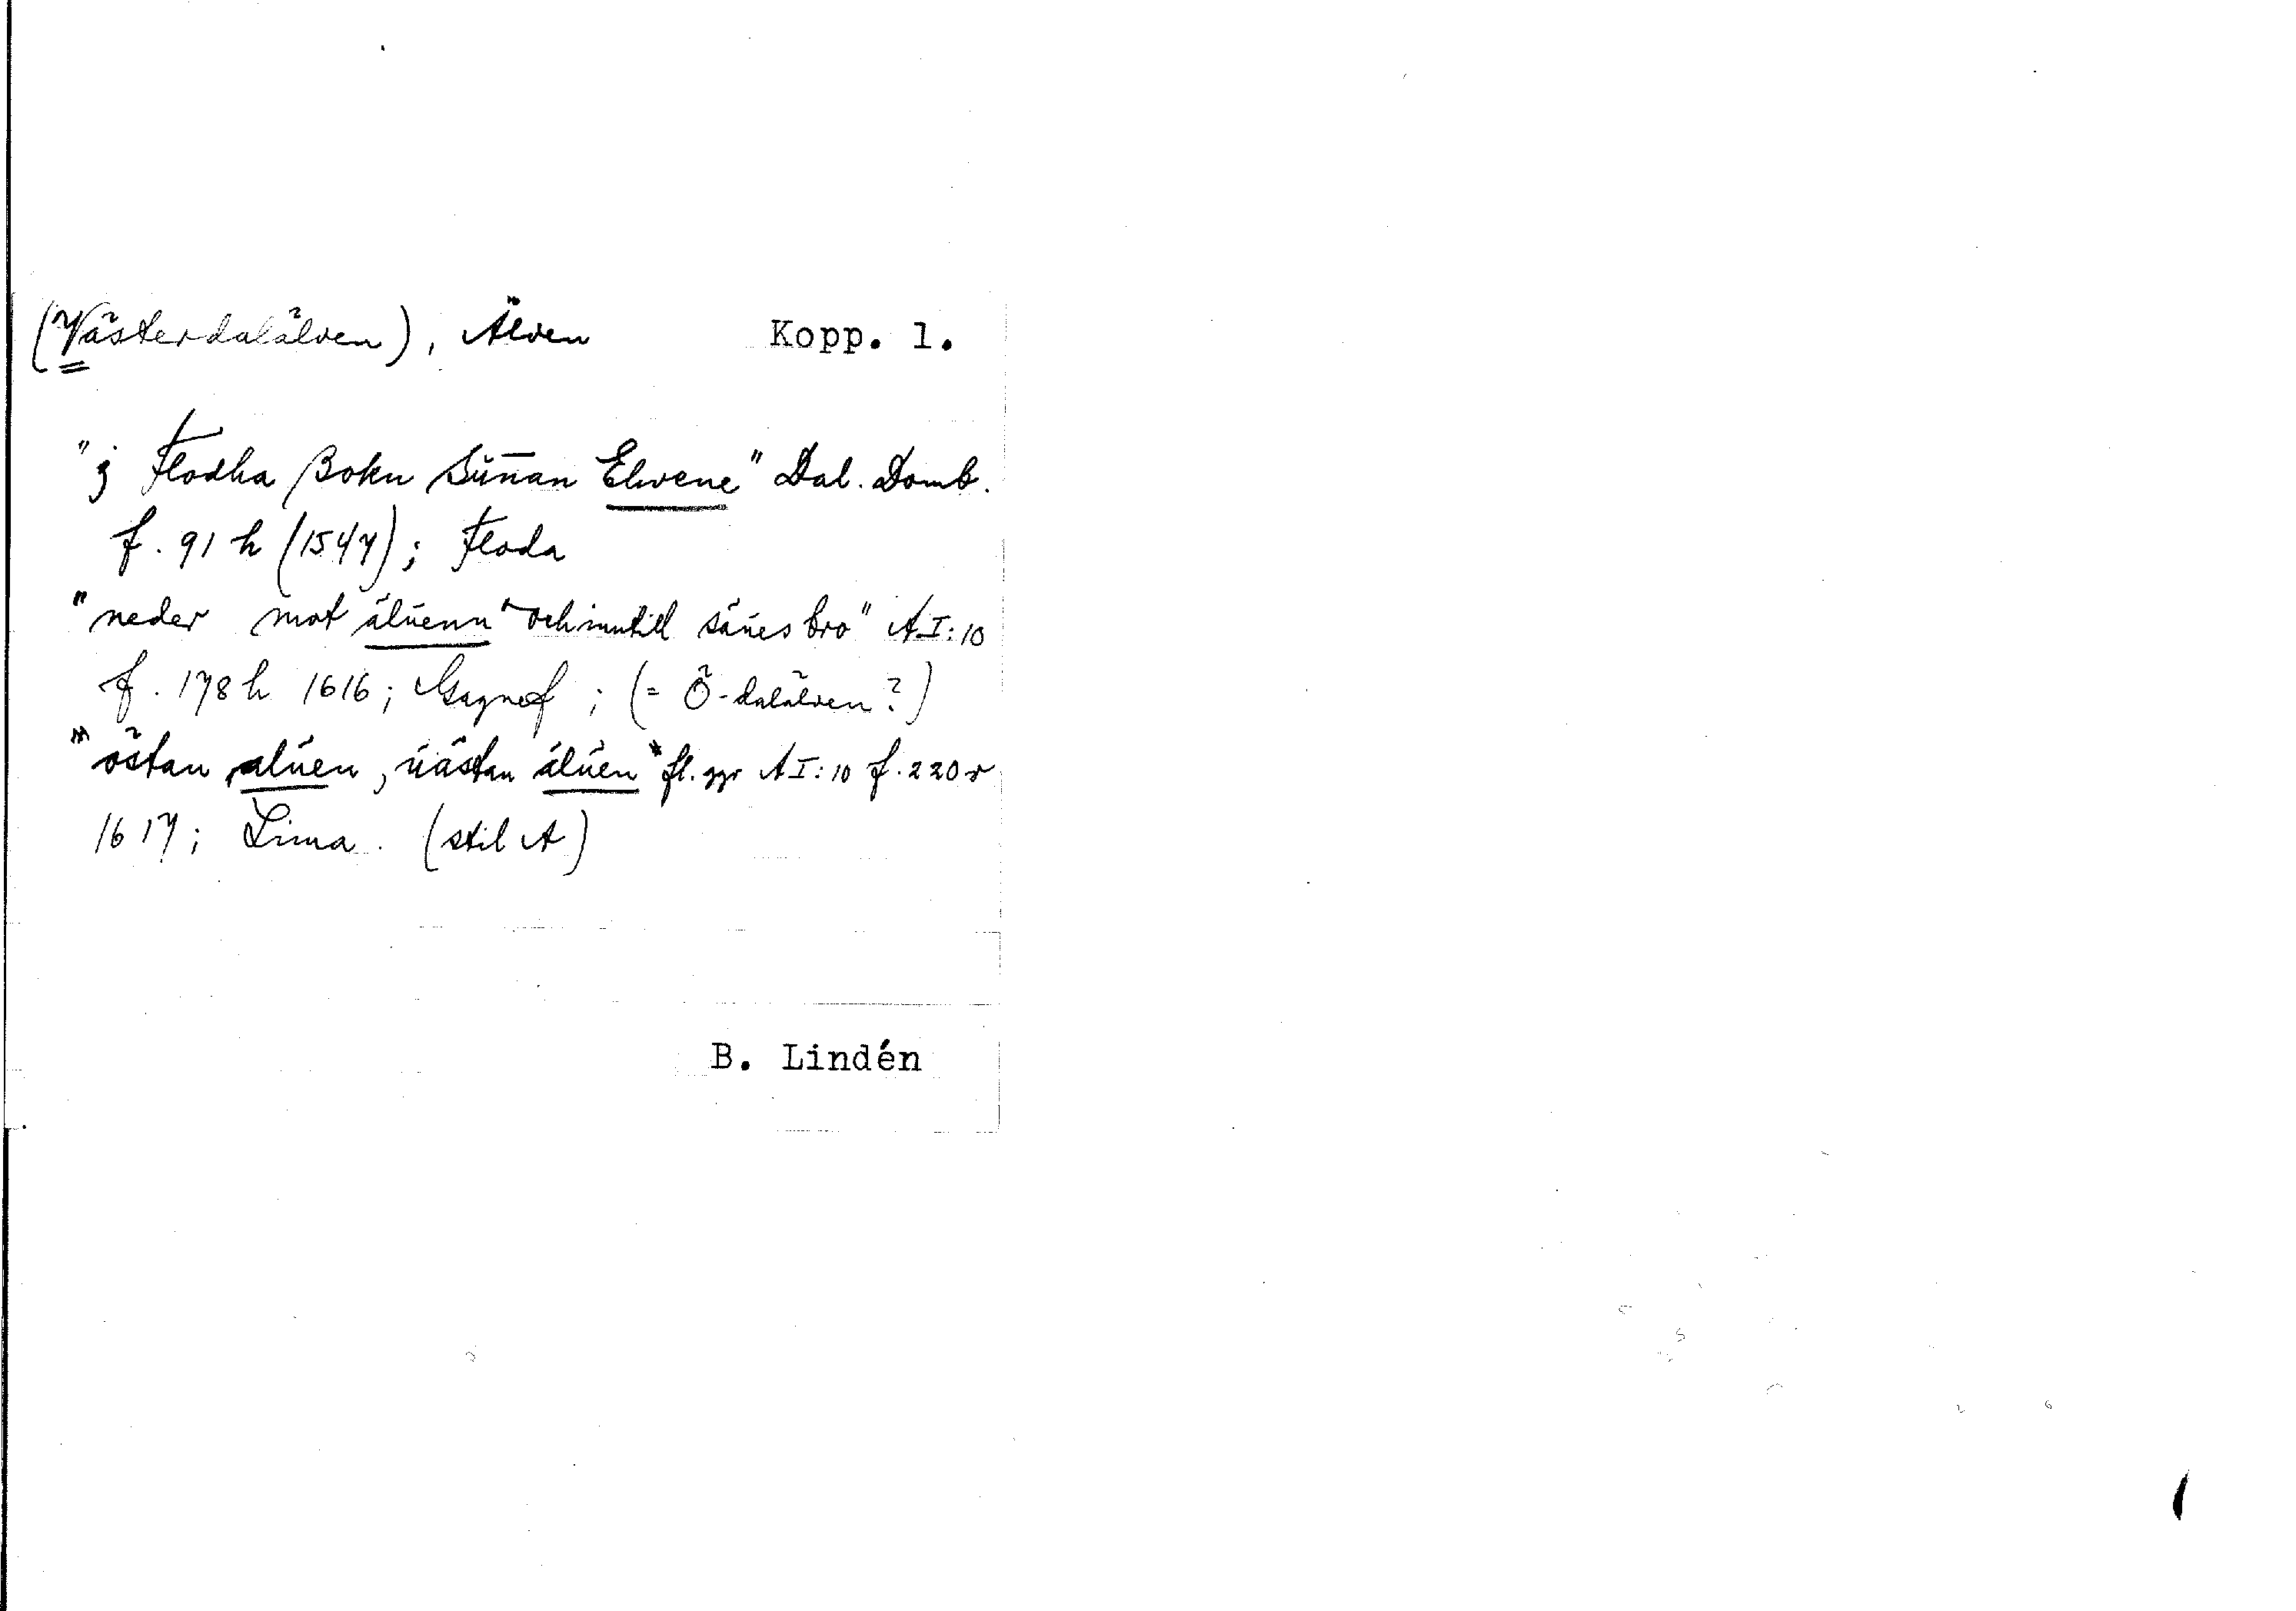 (Västerdalälven), Älven Kopp. l.
"j Flodha Sokn Sūn̄an Elwene" Dal. Domb.
f. 91 h (1547); Floda
"neder mot älůenn" och inntill sånes bro" A I:10
f. 178 h 1616; Gagnef; (= Ö-dalälven?)
"östan alůen, ůästan älůen" fl. ggr A I:10 f. 220 v
1617; Lima. (stil A)
B. Lindén